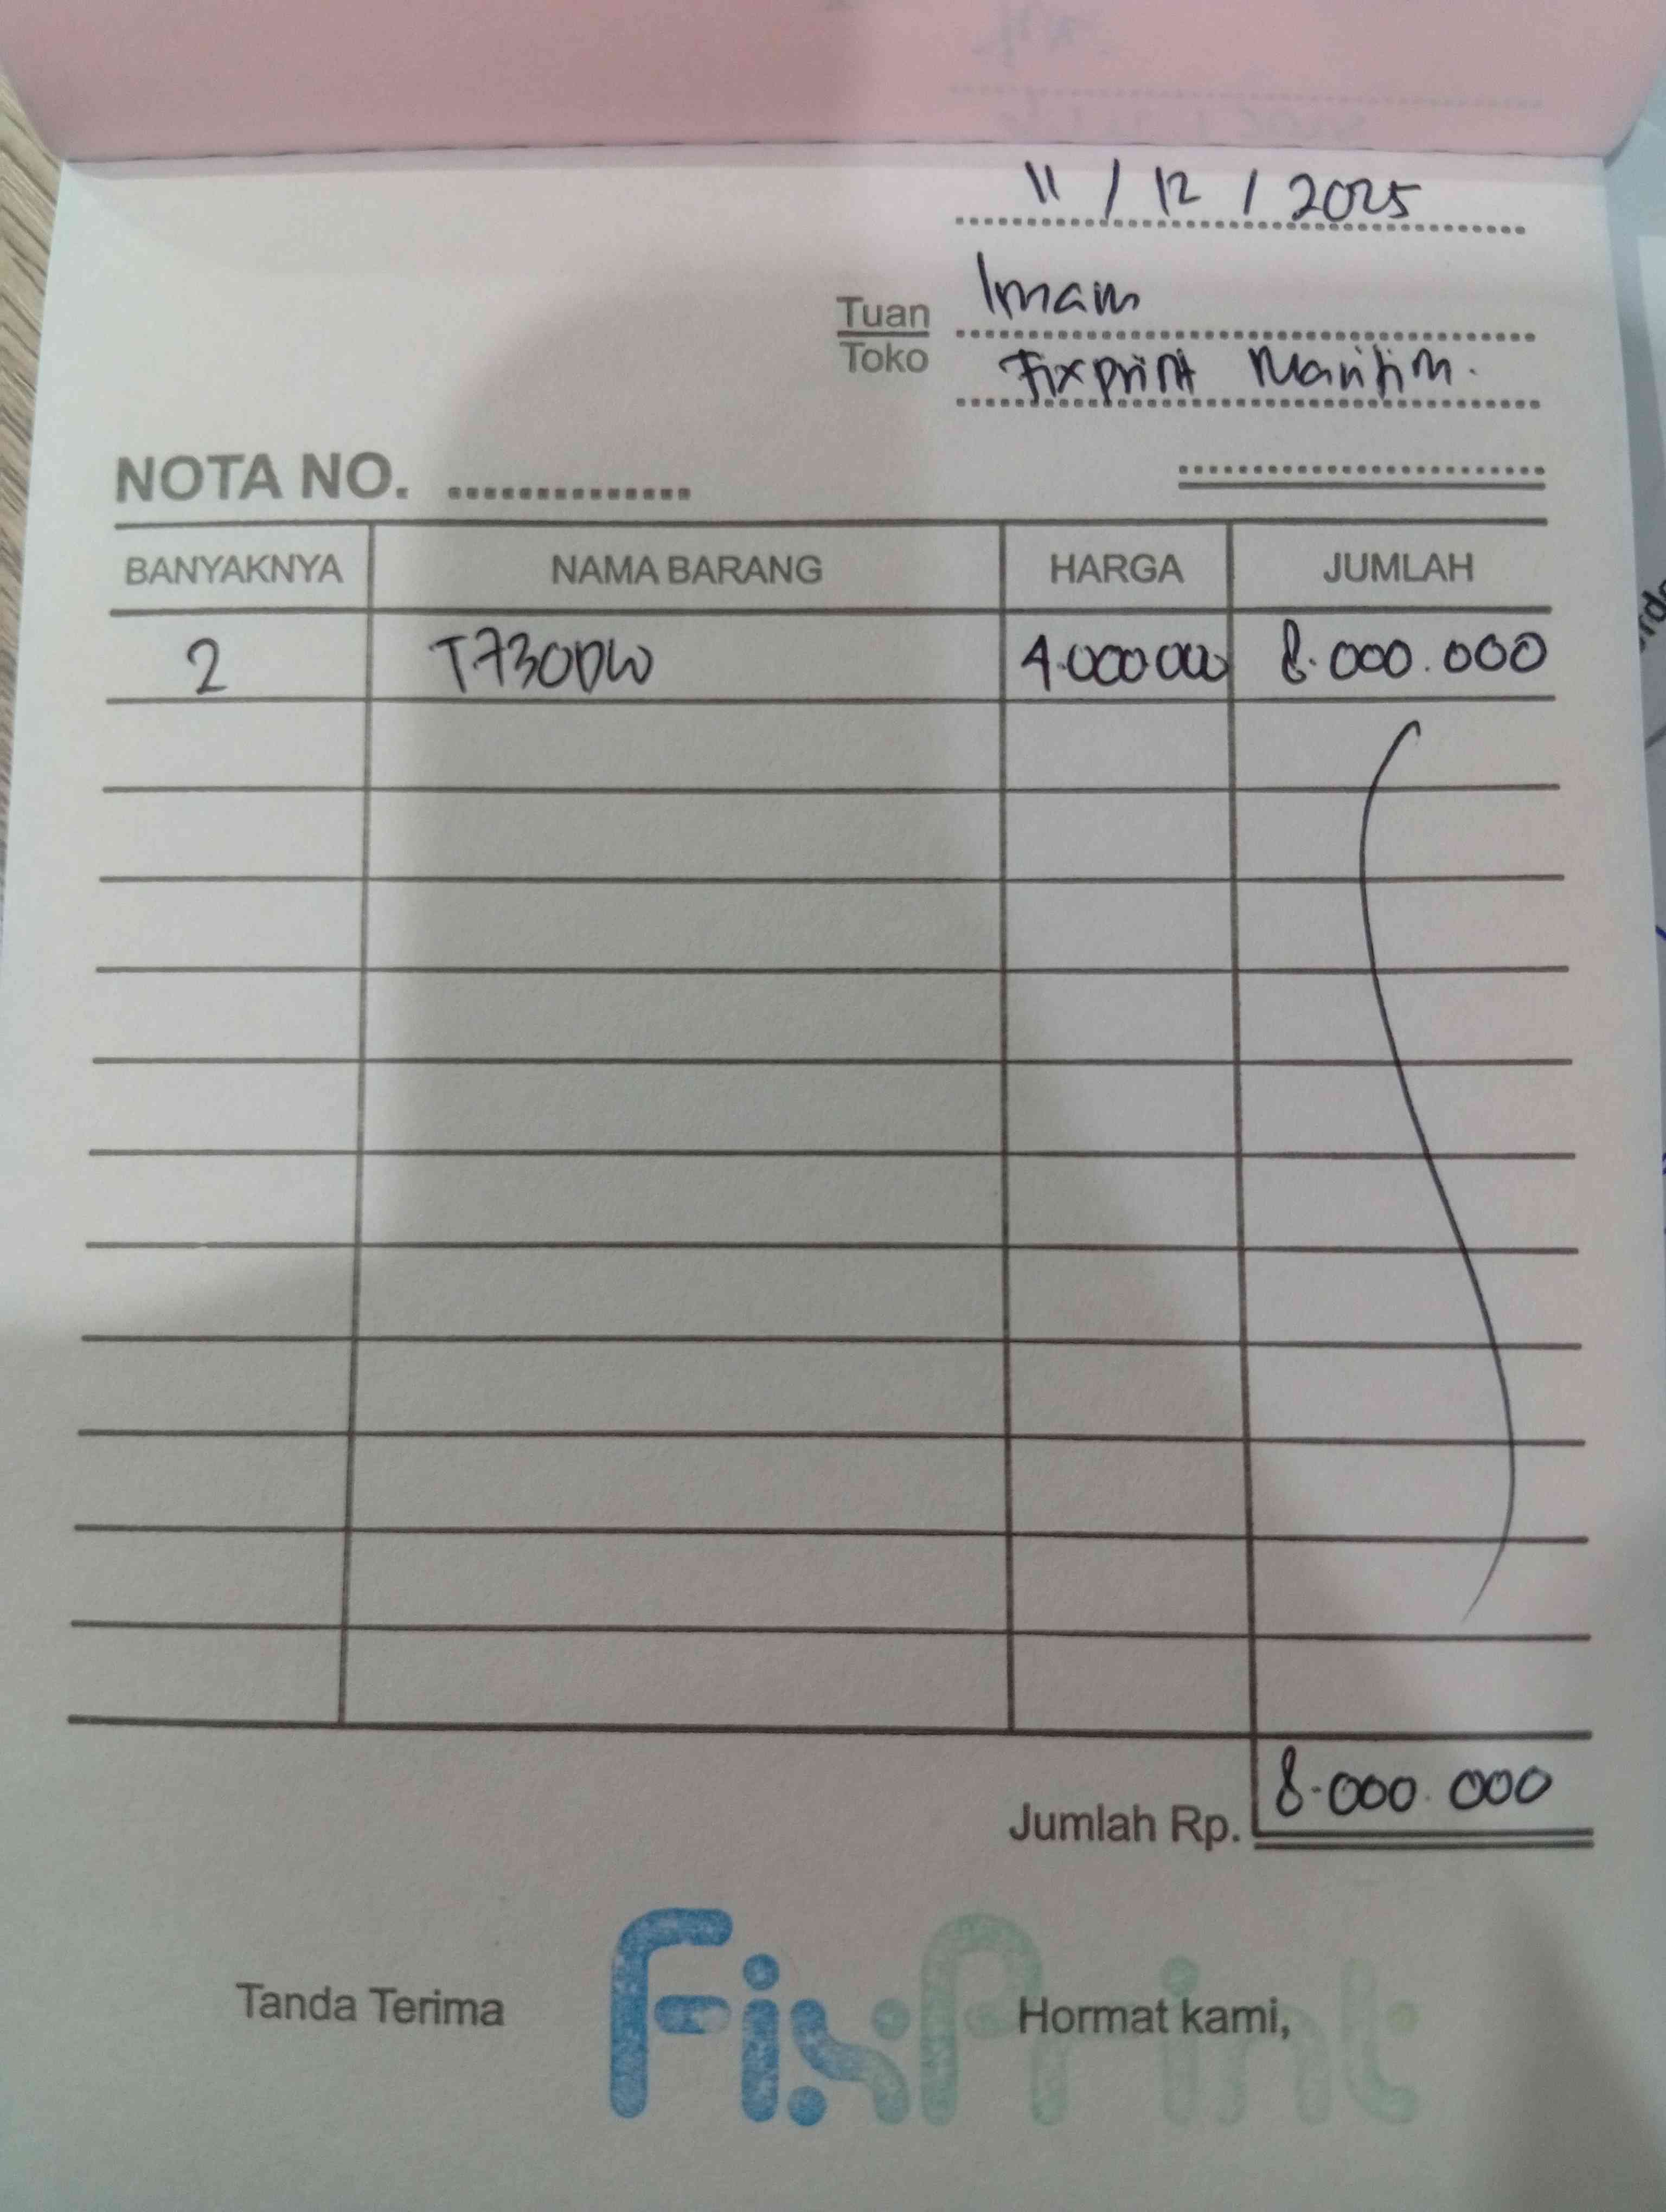 11 / 12 / 2025
Tuan Imam
Toko Fixprint Maritim.
NOTA NO. ..............
BANYAKNYA NAMA BARANG HARGA JUMLAH
2 T730DW 4.000.000 8.000.000
Jumlah Rp. 8.000.000
Tanda Terima Hormat kami,
FixPrint